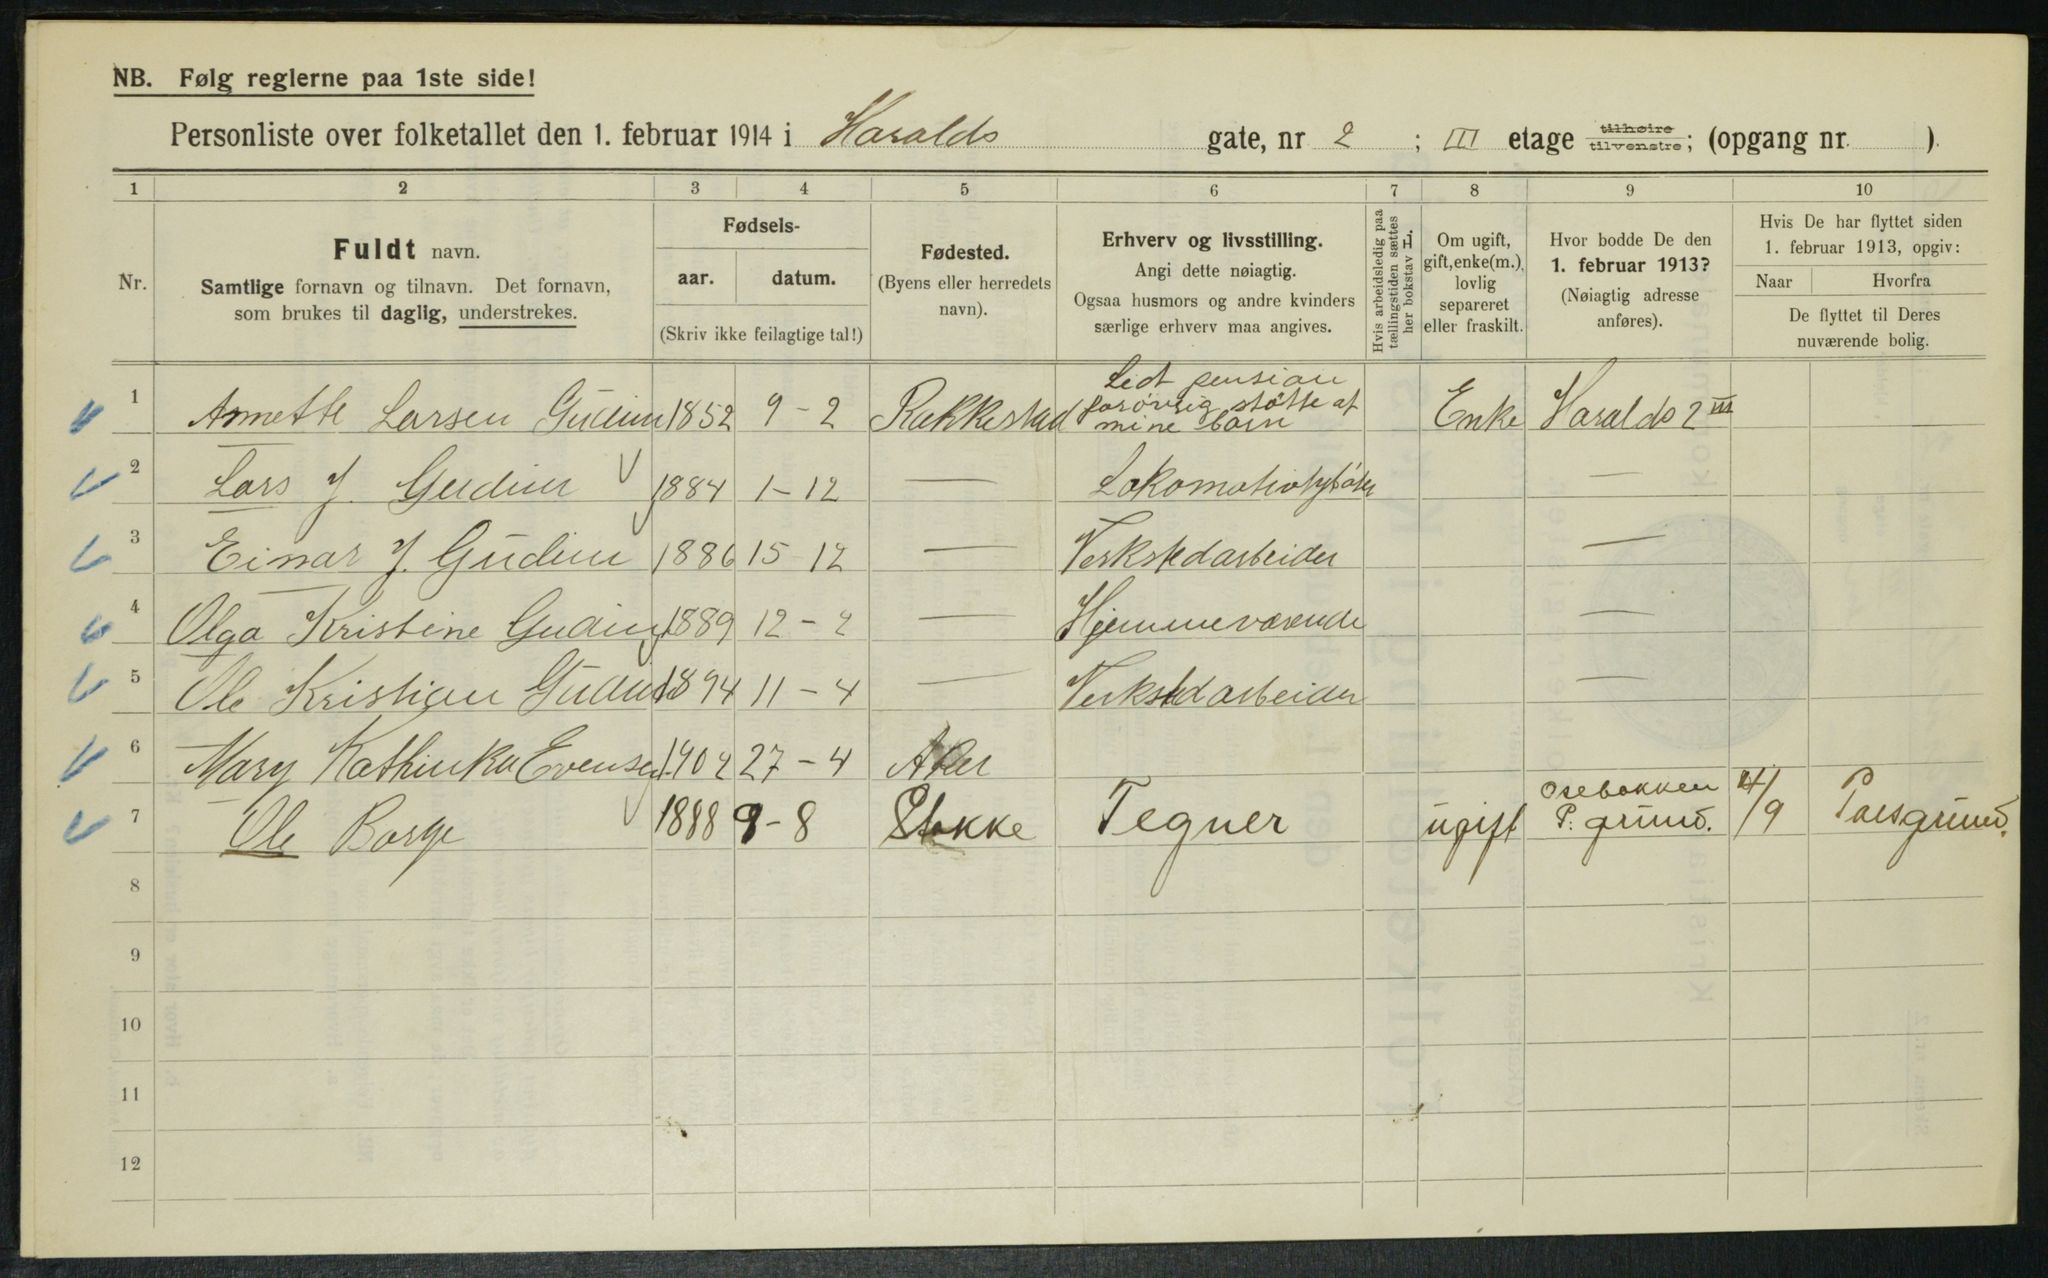 NB. Følg reglerne paa 1ste side!
Personliste over folketallet den 1. februar 1914 i Haralds gate, nr 2 ; III etage tilhøire tilvenstre; (opgang nr. ).
1 2 3 4 5 6 7 8 9 10
Nr.
Fuldt navn.
Samtlige fornavn og tilnavn. Det fornavn,
som brukes til daglig, understrekes.
Fødsels-
aar. datum.
(Skriv ikke feilagtige tal!)
Fødested.
(Byens eller herredets
navn).
Erhverv og livsstilling.
Angi dette nøiagtig.
Ogsaa husmors og andre kvinders
særlige erhverv maa angives.
Hvis arbeidsledig paa
tællingstiden sættes
her bokstav L.
Om ugift,
gift, enke(m.),
lovlig
separeret
eller fraskilt.
Hvor bodde De den
1. februar 1913?
(Nøiagtig adresse
anføres).
Hvis De har flyttet siden
1. februar 1913, opgiv:
Naar Hvorfra
De flyttet til Deres
nuværende bolig.
1 Annette Larsen Gudim 1852 9-2 Rakkestad Lidt pension forøvrig støtte af mine barn Enke Haralds 2 III
2 Lars J. Gudim 1884 1-12 — Lokomotivfybøter —
3 Einar J. Gudim 1886 15-12 — Verkstedarbeider —
4 Olga Kristine Gudim 1889 12-2 — Hjemmeværende —
5 Ole Kristian Gudim 1894 11-4 — Verkstedarbeider —
6 Mary Kathinka Evensen 1902 27-4 Aker
7 Ole Borge 1888 9-8 Stokke Tegner ugift Osebakken P: grund. /9 Porsgrund.
8
9
10
11
12